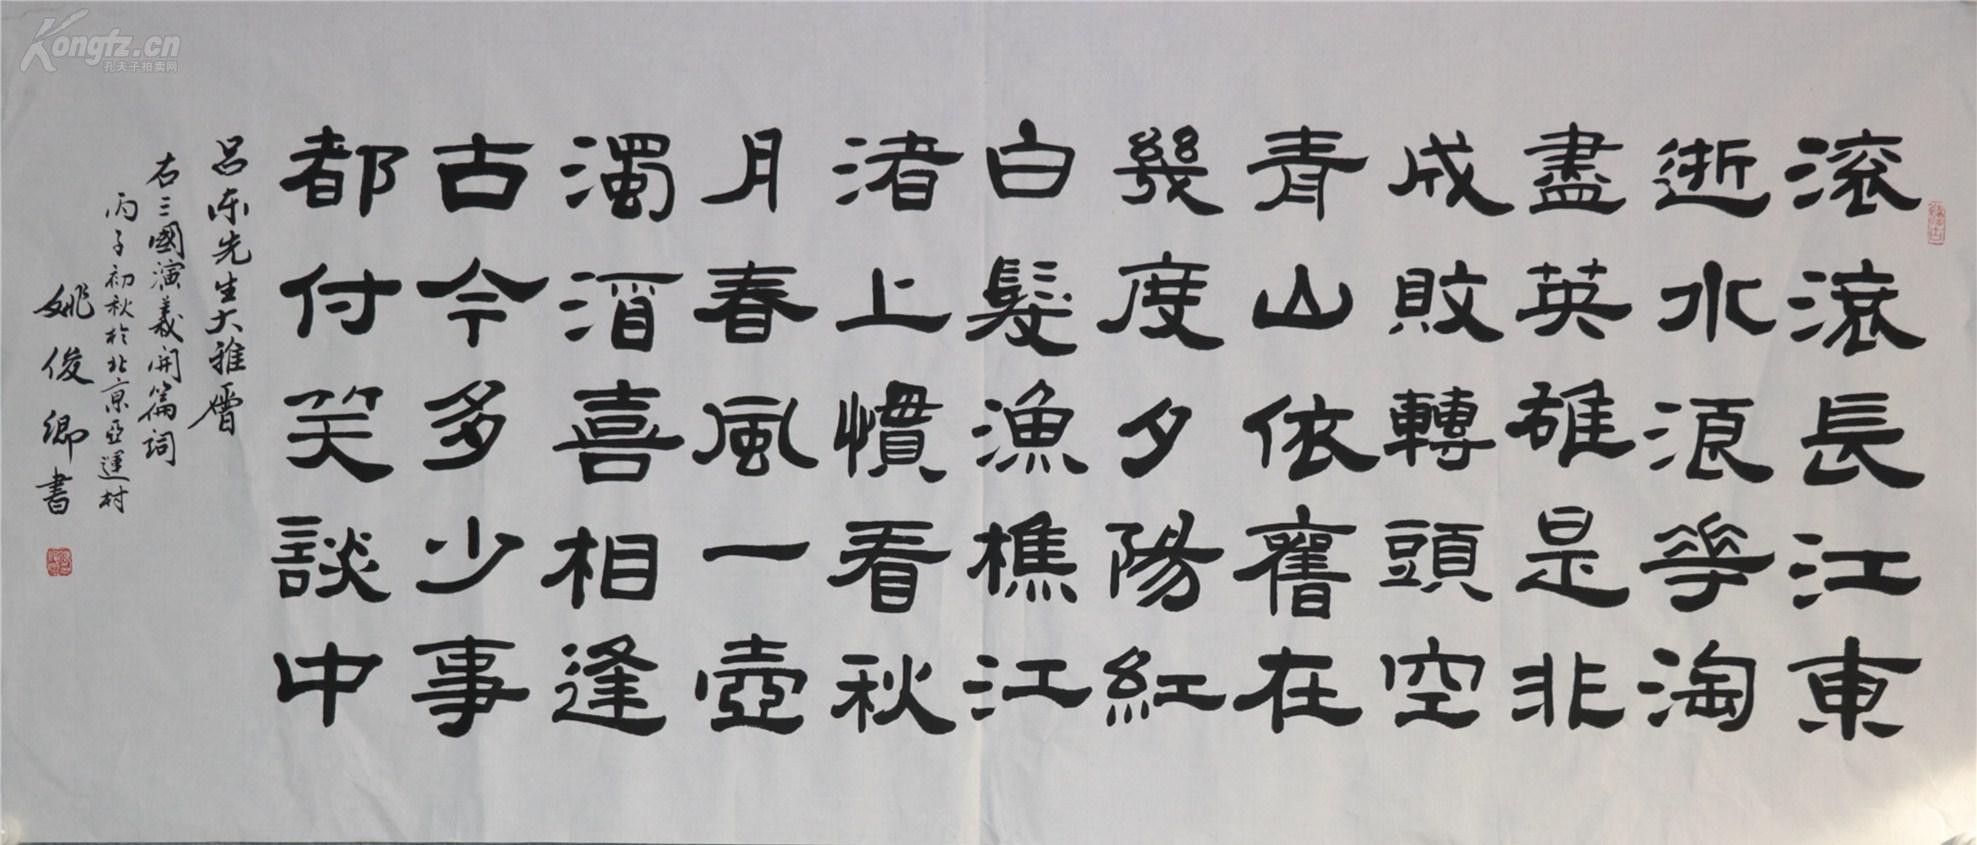 滾滾長江東
逝水浪花淘
盡英雄是非
成敗轉頭空
青山依舊在
幾度夕陽紅
白髮漁樵江
渚上慣看秋
月春風一壺
濁酒喜相逢
古今多少事
都付笑談中
呂東先生大雅屬
右三國演義開篇詞
丙子初秋於北京亞運村
姚俊卿書
Kongfz.cn
孔夫子拍卖网